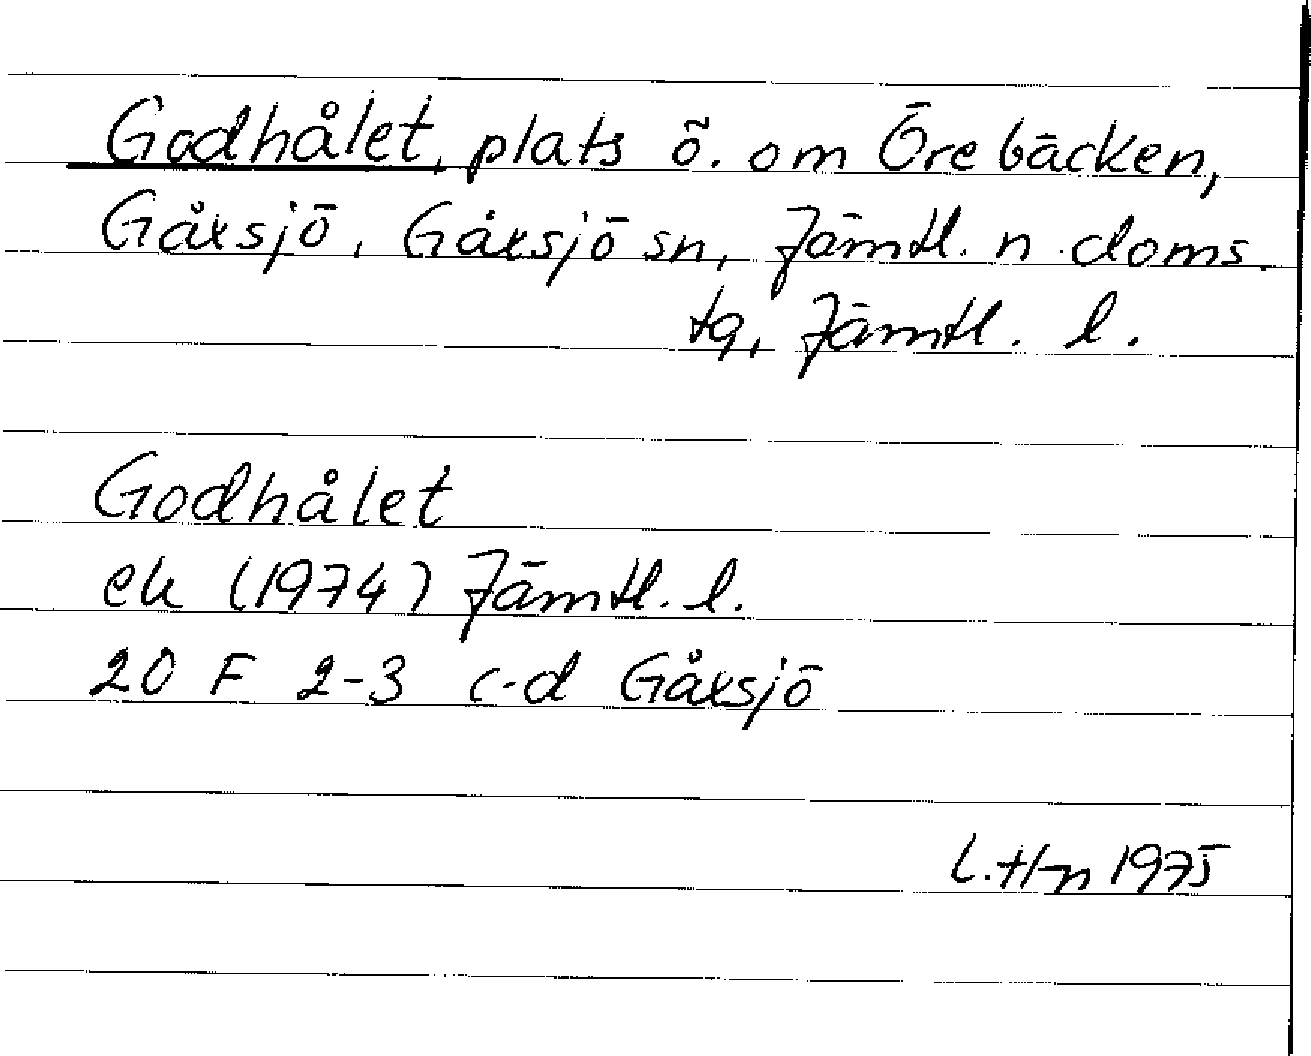 Godhålet, plats ö. om Örebäcken,
Gåxsjö, Gåxsjö sn, Jämtl. n. doms.
tg, Jämtl. l.
Godhålet
ek (1974) Jämtl. l.
20 F 2-3 c-d Gåxsjö
L. H-n 1975